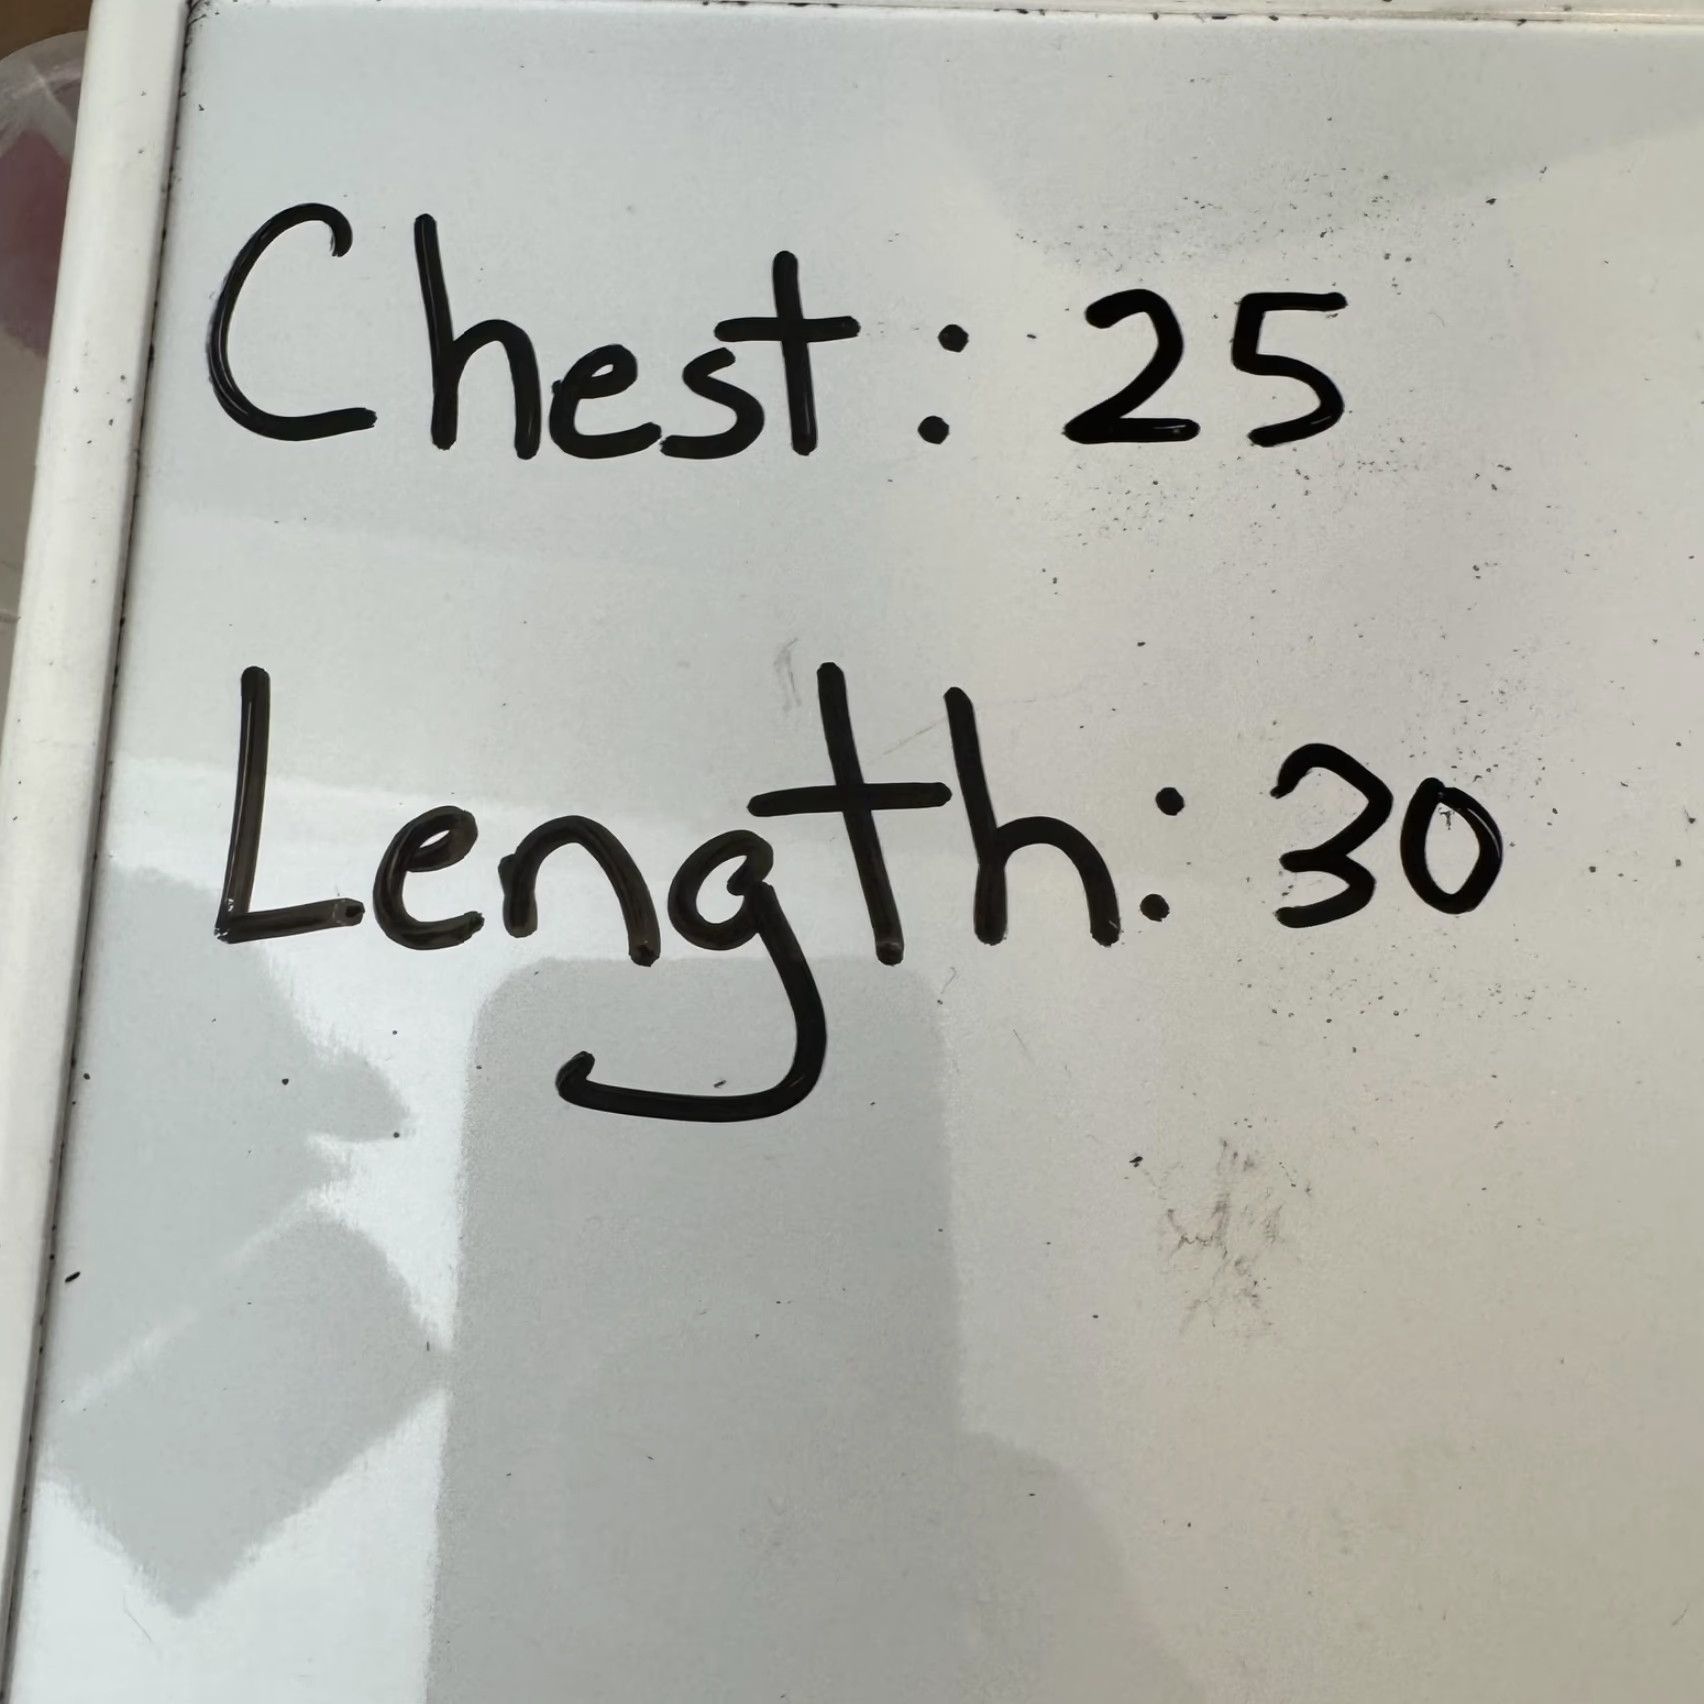 Chest: 25
Length: 30